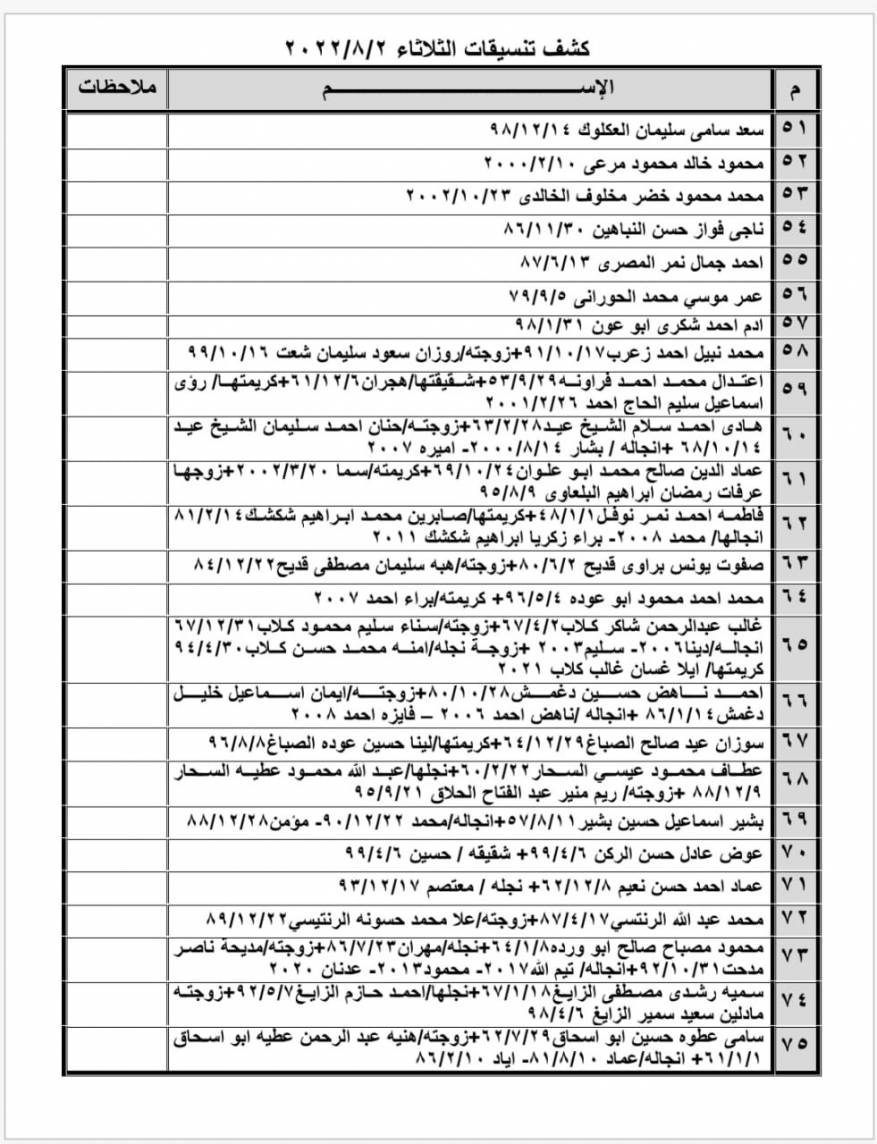 كشف تنسيقات الثلاثاء ٢٠٢٢/٨/٢
م الإســـم ملاحظات
٥١ سعد سامى سليمان العكلوك ٩٨/١٢/١٤
٥٢ محمود خالد محمود مرعى ٢٠٠٠/٢/١٠
٥٣ محمد محمود خضر مخلوف الخالدى ٢٠٠٢/١٠/٢٣
٥٤ ناجى فواز حسن النباهين ٨٦/١١/٣٠
٥٥ احمد جمال نمر المصرى ٨٧/٦/١٣
٥٦ عمر موسي محمد الحورانى ٧٩/٩/٥
٥٧ ادم احمد شكرى ابو عون ٩٨/١/٣١
٥٨ محمد نبيل احمد زعرب٩١/١٠/١٧+زوجته/روزان سعود سليمان شعت ٩٩/١٠/١٦
٥٩ اعتدال محمد احمد فراونه٥٣/٩/٢٩+شقيقتها/هجران٦١/١٢/٦+كريمتها/ رؤى
اسماعيل سليم الحاج احمد ٢٠٠١/٢/٢٦
٦٠ هادى احمد سلام الشيخ عيد٦٣/٢/٢٨+زوجته/حنان احمد سليمان الشيخ عيد
٦٨/١٠/١٤ +انجاله / بشار ٢٠٠٠/٨/١٤- اميره ٢٠٠٧
٦١ عماد الدين صالح محمد ابو علوان٦٩/١٠/٢٤+كريمته/سما ٢٠٠٢/٣/٢٠+زوجها
عرفات رمضان ابراهيم البلعاوى ٩٥/٨/٩
٦٢ فاطمه احمد نمر نوفل٤٨/١/١+كريمتها/صابرين محمد ابراهيم شكشك٨١/٢/١٤
انجالها/ محمد ٢٠٠٨- براء زكريا ابراهيم شكشك ٢٠١١
٦٣ صفوت يونس براوى قديح ٨٠/٦/٢+زوجته/هبه سليمان مصطفى قديح٨٤/١٢/٢٢
٦٤ محمد احمد محمود ابو عوده ٩٦/٥/٤+ كريمته/براء احمد ٢٠٠٧
٦٥ غالب عبدالرحمن شاكر كلاب٦٧/٤/٢+زوجته/سناء سليم محمود كلاب٦٧/١٢/٣١
انجاله/دينا٢٠٠٦- سليم٢٠٠٣ +زوجة نجله/امنه محمد حسن كلاب٩٤/٤/٣٠
كريمتها/ ايلا غسان غالب كلاب ٢٠٢١
٦٦ احمد ناهض حسين دغمش٨٠/١٠/٢٨+زوجته/ايمان اسماعيل خليل
دغمش٨٦/١/١٤ +انجاله /ناهض احمد ٢٠٠٦ – فايزه احمد ٢٠٠٨
٦٧ سوزان عيد صالح الصباغ٦٤/١٢/٢٩+كريمتها/لينا حسين عوده الصباغ٩٦/٨/٨
٦٨ عطاف محمود عيسي السحار٦٠/٢/٢٢+نجلها/عبد الله محمود عطيه السحار
٨٨/١٢/٩ +زوجته/ ريم منير عبد الفتاح الحلاق ٩٥/٩/٢١
٦٩ بشير اسماعيل حسين بشير٥٧/٨/١١+انجاله/محمد ٩٠/١٢/٢٢- مؤمن٨٨/١٢/٢٨
٧٠ عوض عادل حسن الركن ٩٩/٤/٦+ شقيقه / حسين ٩٩/٤/٦
٧١ عماد احمد حسن نعيم ٦٢/١٢/٨+ نجله / معتصم ٩٣/١٢/١٧
٧٢ محمد عبد الله الرنتسي٨٧/٤/١٧+زوجته/علا محمد حسونه الرنتيسي٨٩/١٢/٢٢
٧٣ محمود مصباح صالح ابو ورده٦٤/١/٨+نجله/مهران٨٦/٧/٢٣+زوجته/مديحة ناصر
مدحت٩٢/١٠/٣١+انجاله/ تيم الله٢٠١٧- محمود٢٠١٣- عدنان ٢٠٢٠
٧٤ سميه رشدى مصطفى الزايغ٦٧/١/١٨+نجلها/احمد حازم الزايغ٩٢/٥/٧+زوجته
مادلين سعيد سمير الزايغ ٩٨/٤/٦
٧٥ سامى عطوه حسين ابو اسحاق٦٢/٧/٢٩+زوجته/هنيه عبد الرحمن عطيه ابو اسحاق
٦١/١/١+ انجاله/عماد ٨١/٨/١٠- اياد ٨٦/٢/١٠